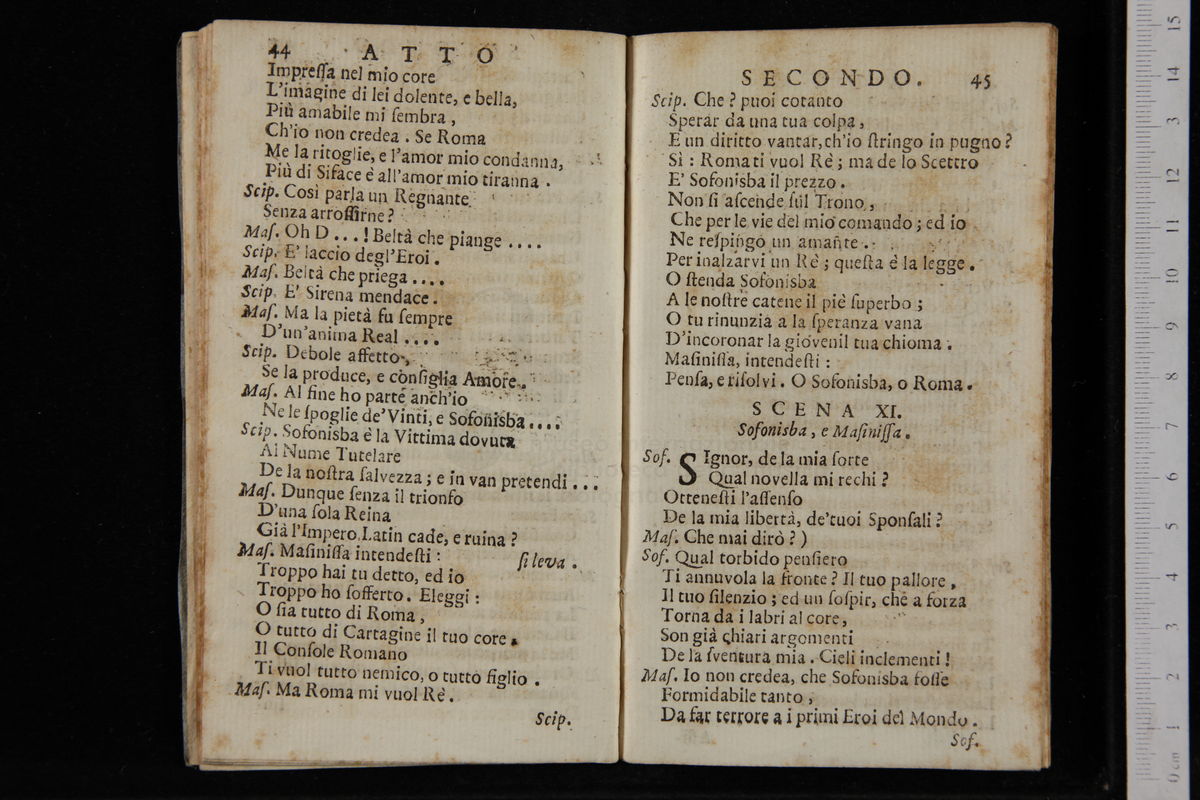 44 ATTO
Impreſſa nel mio core
L'imagine di lei dolente, e bella,
Più amabile mi ſembra,
Ch'io non credea. Se Roma
Me la ritoglie, e l'amor mio condanna,
Più di Siface è all'amor mio tiranna.
Scip. Così parla un Regnante
Senza arroſſirne?
Maſ. Oh D...! Beltà che piange....
Scip. E' laccio degl'Eroi.
Maſ. Beltà che priega....
Scip. E' Sirena mendace.
Maſ. Ma la pietà fu ſempre
D'un'anima Real....
Scip. Debole affetto,
Se la produce, e conſiglia Amore.
Maſ. Al fine ho parte anch'io
Ne le ſpoglie de' Vinti, e Sofonisba....
Scip. Sofonisba è la Vittima dovuta
Al Nume Tutelare
De la noſtra ſalvezza; e in van pretendi...
Maſ. Dunque ſenza il trionfo
D'una ſola Reina
Già l'Impero Latin cade, e ruina?
Maſ. Maſiniſſa intendeſti: ſi leva.
Troppo hai tu detto, ed io
Troppo ho ſofferto. Eleggi:
O ſia tutto di Roma,
O tutto di Cartagine il tuo core.
Il Conſole Romano
Ti vuol tutto nemico, o tutto figlio.
Maſ. Ma Roma mi vuol Rè.
Scip.
SECONDO. 45
Scip. Che? puoi cotanto
Sperar da una tua colpa,
E un diritto vantar, ch'io ſtringo in pugno?
Sì: Roma ti vuol Rè; ma de lo Scettro
E' Sofonisba il prezzo.
Non ſi aſcende ſul Trono,
Che per le vie del mio comando; ed io
Ne reſpingo un amante.
Per inalzarvi un Rè; queſta è la legge.
O ſtenda Sofonisba
A le noſtre catene il piè ſuperbo;
O tu rinunzia a la ſperanza vana
D'incoronar la giovenil tua chioma.
Maſiniſſa, intendeſti:
Penſa, e riſolvi. O Sofonisba, o Roma.
SCENA XI.
Sofonisba, e Maſiniſſa.
Sof. SIgnor, de la mia ſorte
Qual novella mi rechi?
Otteneſti l'aſſenſo
De la mia libertà, de'tuoi Sponſali?
Maſ. Che mai dirò?)
Sof. Qual torbido penſiero
Ti annuvola la fronte? Il tuo pallore,
Il tuo ſilenzio; ed un ſoſpir, che a forza
Torna da i labri al core,
Son già chiari argomenti
De la ſventura mia. Cieli inclementi!
Maſ. Io non credea, che Sofonisba foſſe
Formidabile tanto,
Da far terrore a i primi Eroi del Mondo.
Sof.
0 cm 1 2 3 4 5 6 7 8 9 10 11 12 13 14 15